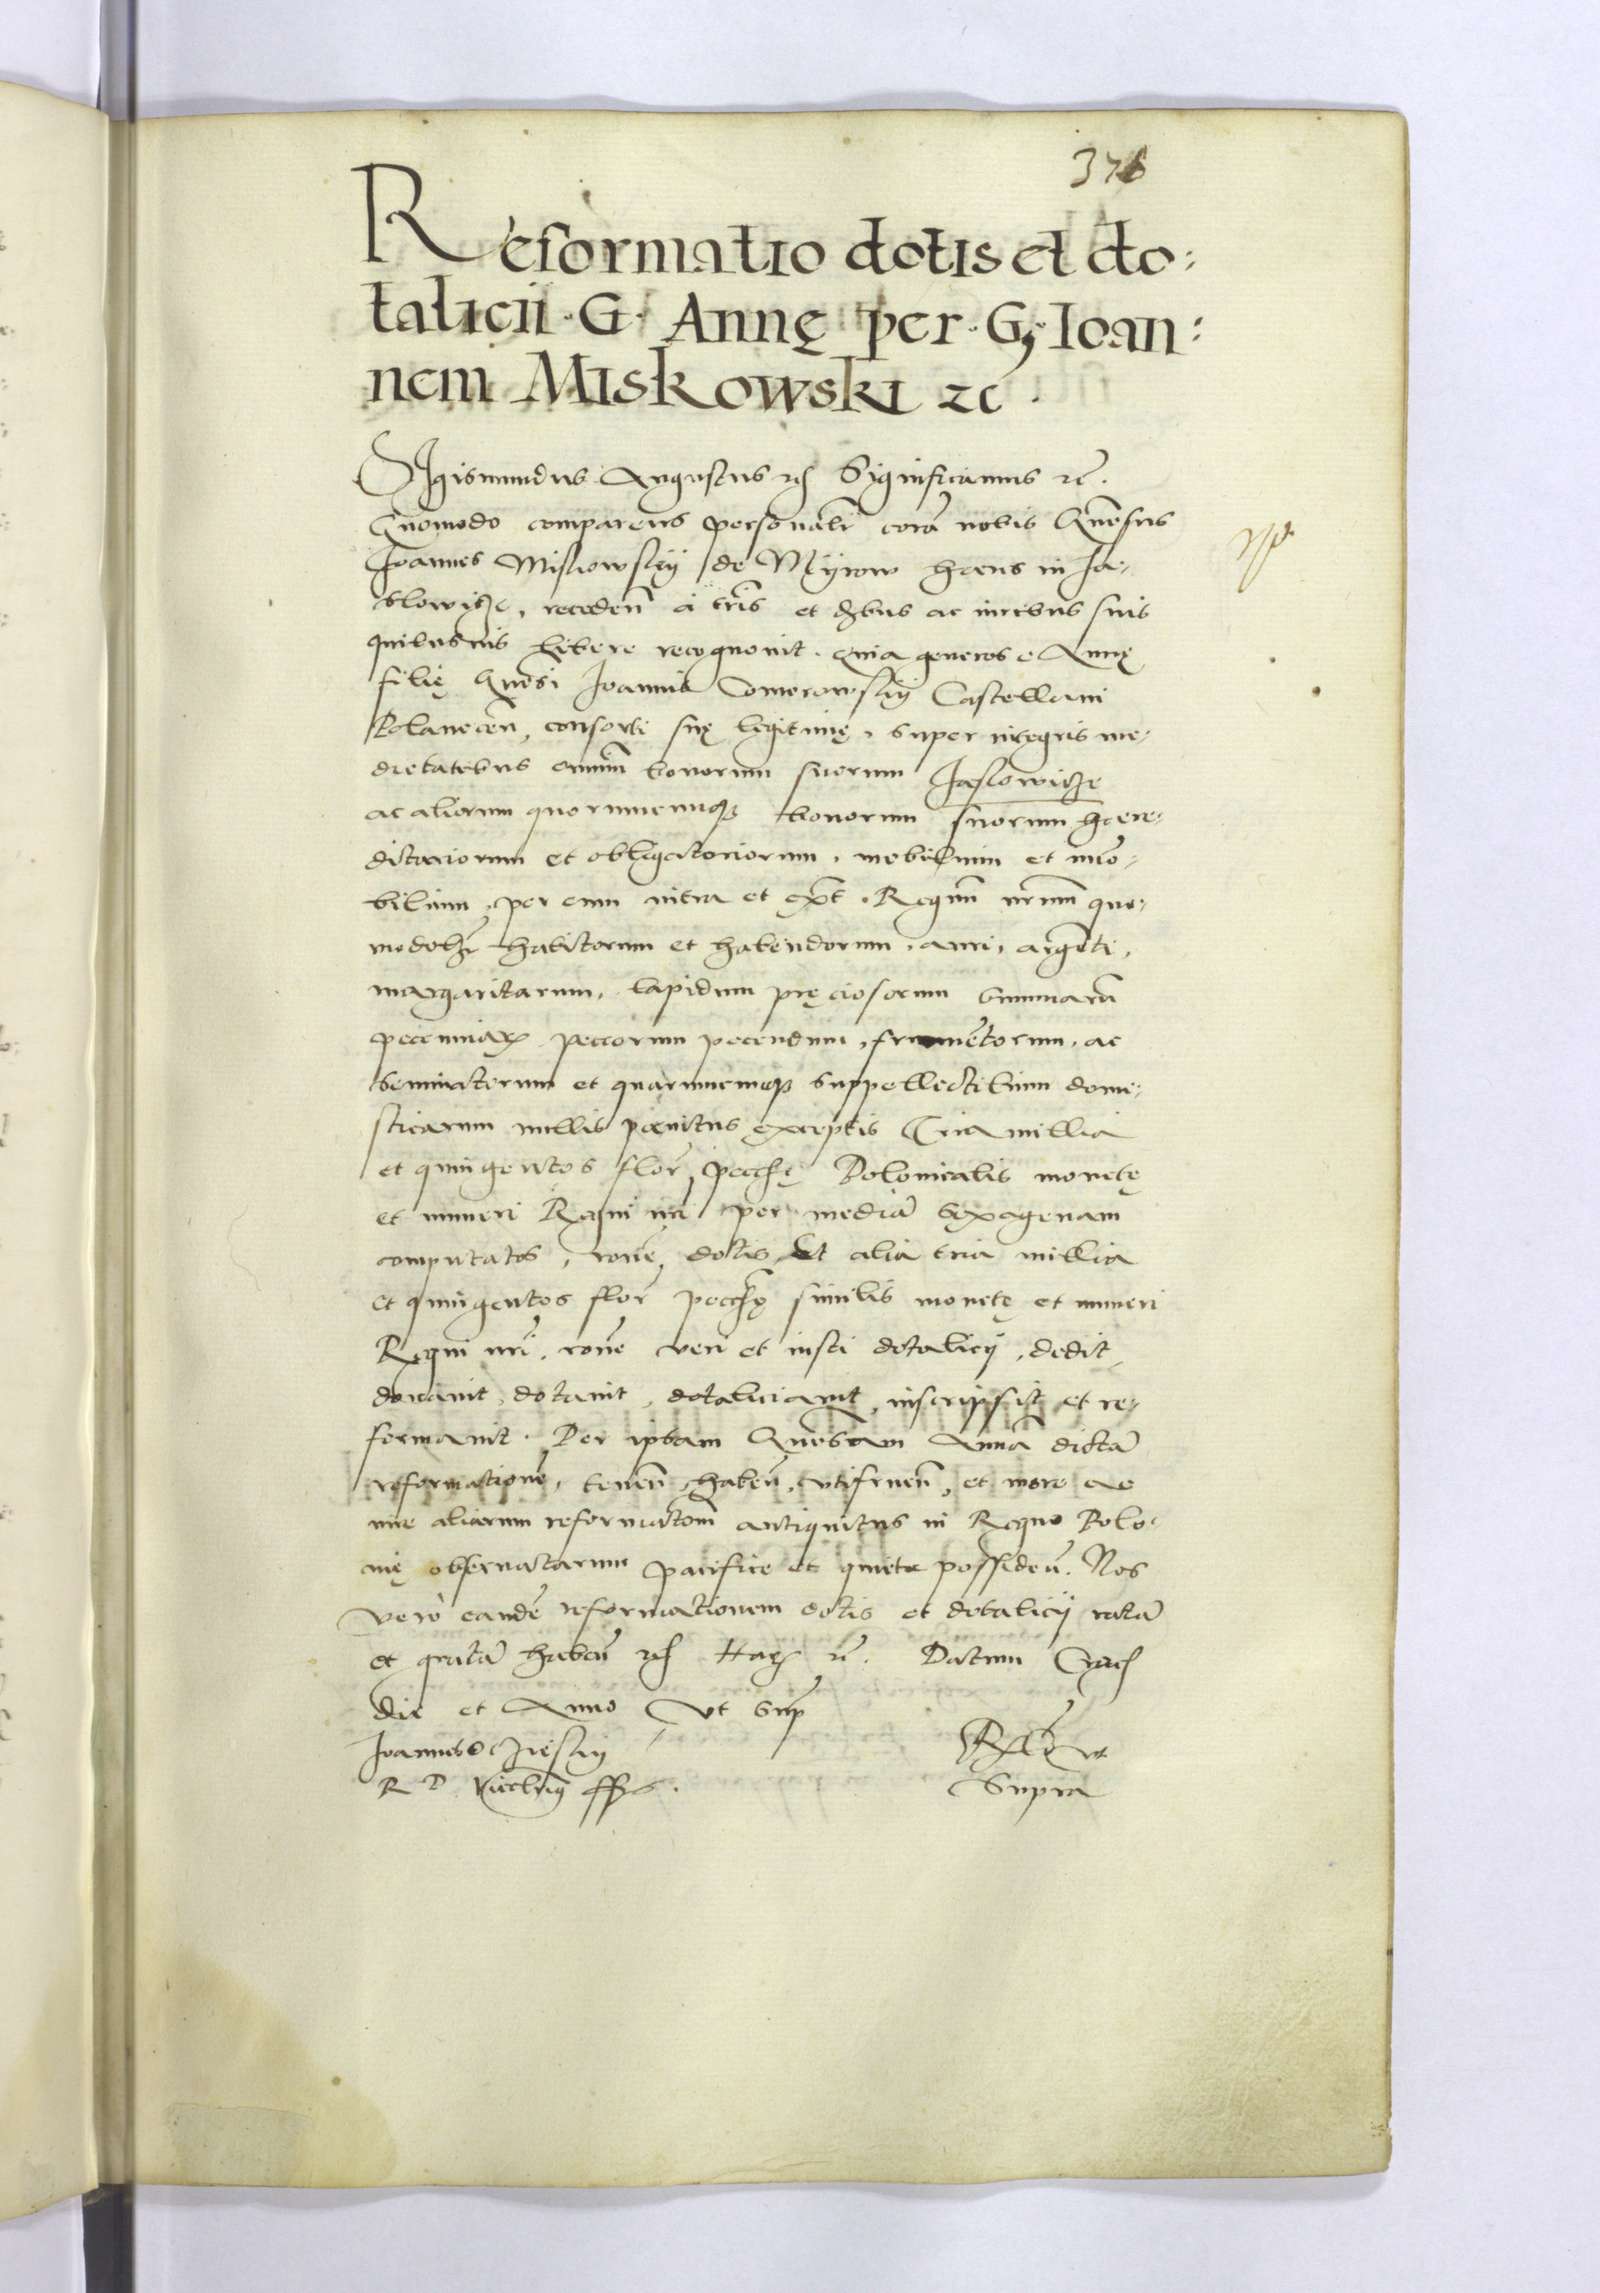 376
Reformatio dotis et do:
talicii · G · Annę per · G · Ioan:
nem Miskowski zc ·
Sigismundus Augustus etc Significamus etc.
Quomodo comparens personalr corā nobis Gnōsus
Joannes Miskowskij de Myrow haeres in Ja,
slowicze, recedeñ à terris et distbus ac iuribus suis
quibusuis libere recognouit. Quia generosę Annę
filię Gnōsi Joannis Comorowskij Castellani
Polanecen, consorti suę legitimę, super integris me,
dietatibus omniū bonorum suorum Jaslowicze
ac aliorum quorumcunq bonorum suorum haere,
ditariorum et obligatoriorum, mobilium et immo,
bilium, per eum intra et extr Regnū nrum quo,
modolz habitorum et habendorum, auri, argēti,
margaritarum, lapidum pręciosorum summarū
pecuniar, peccorum pecudum, frumētorum, ac
seminatorum et quarumcunq suppellectilium dome,
sticarum nullis poenitus exceptis Tria millia
et quingentos flor pecunię Polonicalis monetę
et numeri Regni nri per mediā sexagenam
computatos, roñe dotis Et alia tria millia
et quingentos flor pecunię similis monetę et numeri
Regni nri, roñe veri et iusti dotalicij, dedit,
donauit, dotauit, dotaliciauit, inscripsit et re,
formauit. Per ipsam Gnōsam Annā dictā
reformationē, tenen, haben, vtifruen, et more ac
iure aliarum reformatonū antiquitus in Regno Polo,
nię obseruatarum pacifice et quiete possiden. Nos
verò eandē reformationem dotis et dotalicij ratā
et gratā haben etc Harū etc. Datum Crac
die et Anno Vt sup
Joannes Ocieski
R P Vicecancellarius sspt.
Relō vt
Supra